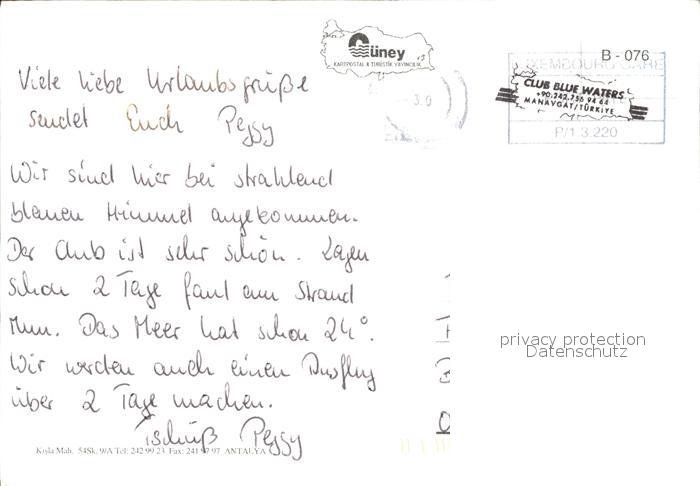 Güney
KARTPOSTAL & TURİSTİK YAYINCILIK
B - 076
CLUB BLUE WATERS
+90.242.756 94 64
MANAVGAT/TÜRKIYE
P/1 3.220
Viele liebe Urlaubsgrüße
sendet Euch Peggy
Wir sind hier bei strahlend
blauen Himmel angekommen.
Der Club ist sehr schön. Lagen
schon 2 Tage faul am Strand
rum. Das Meer hat schon 24°.
Wir werden auch einen Ausflug
über 2 Tage machen.
Tschüß Peggy
privacy protection
Datenschutz
Kışla Mah. 54Sk. 9/A Tel: 242 99 23 Fax: 241 97 97 ANTALYA